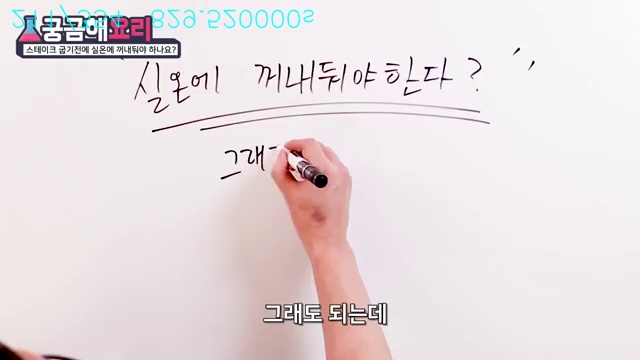 궁금해요리
스테이크 굽기전에 실온에 꺼내둬야 하나요?
실온에 꺼내둬야한다?
그래
그래도 되는데